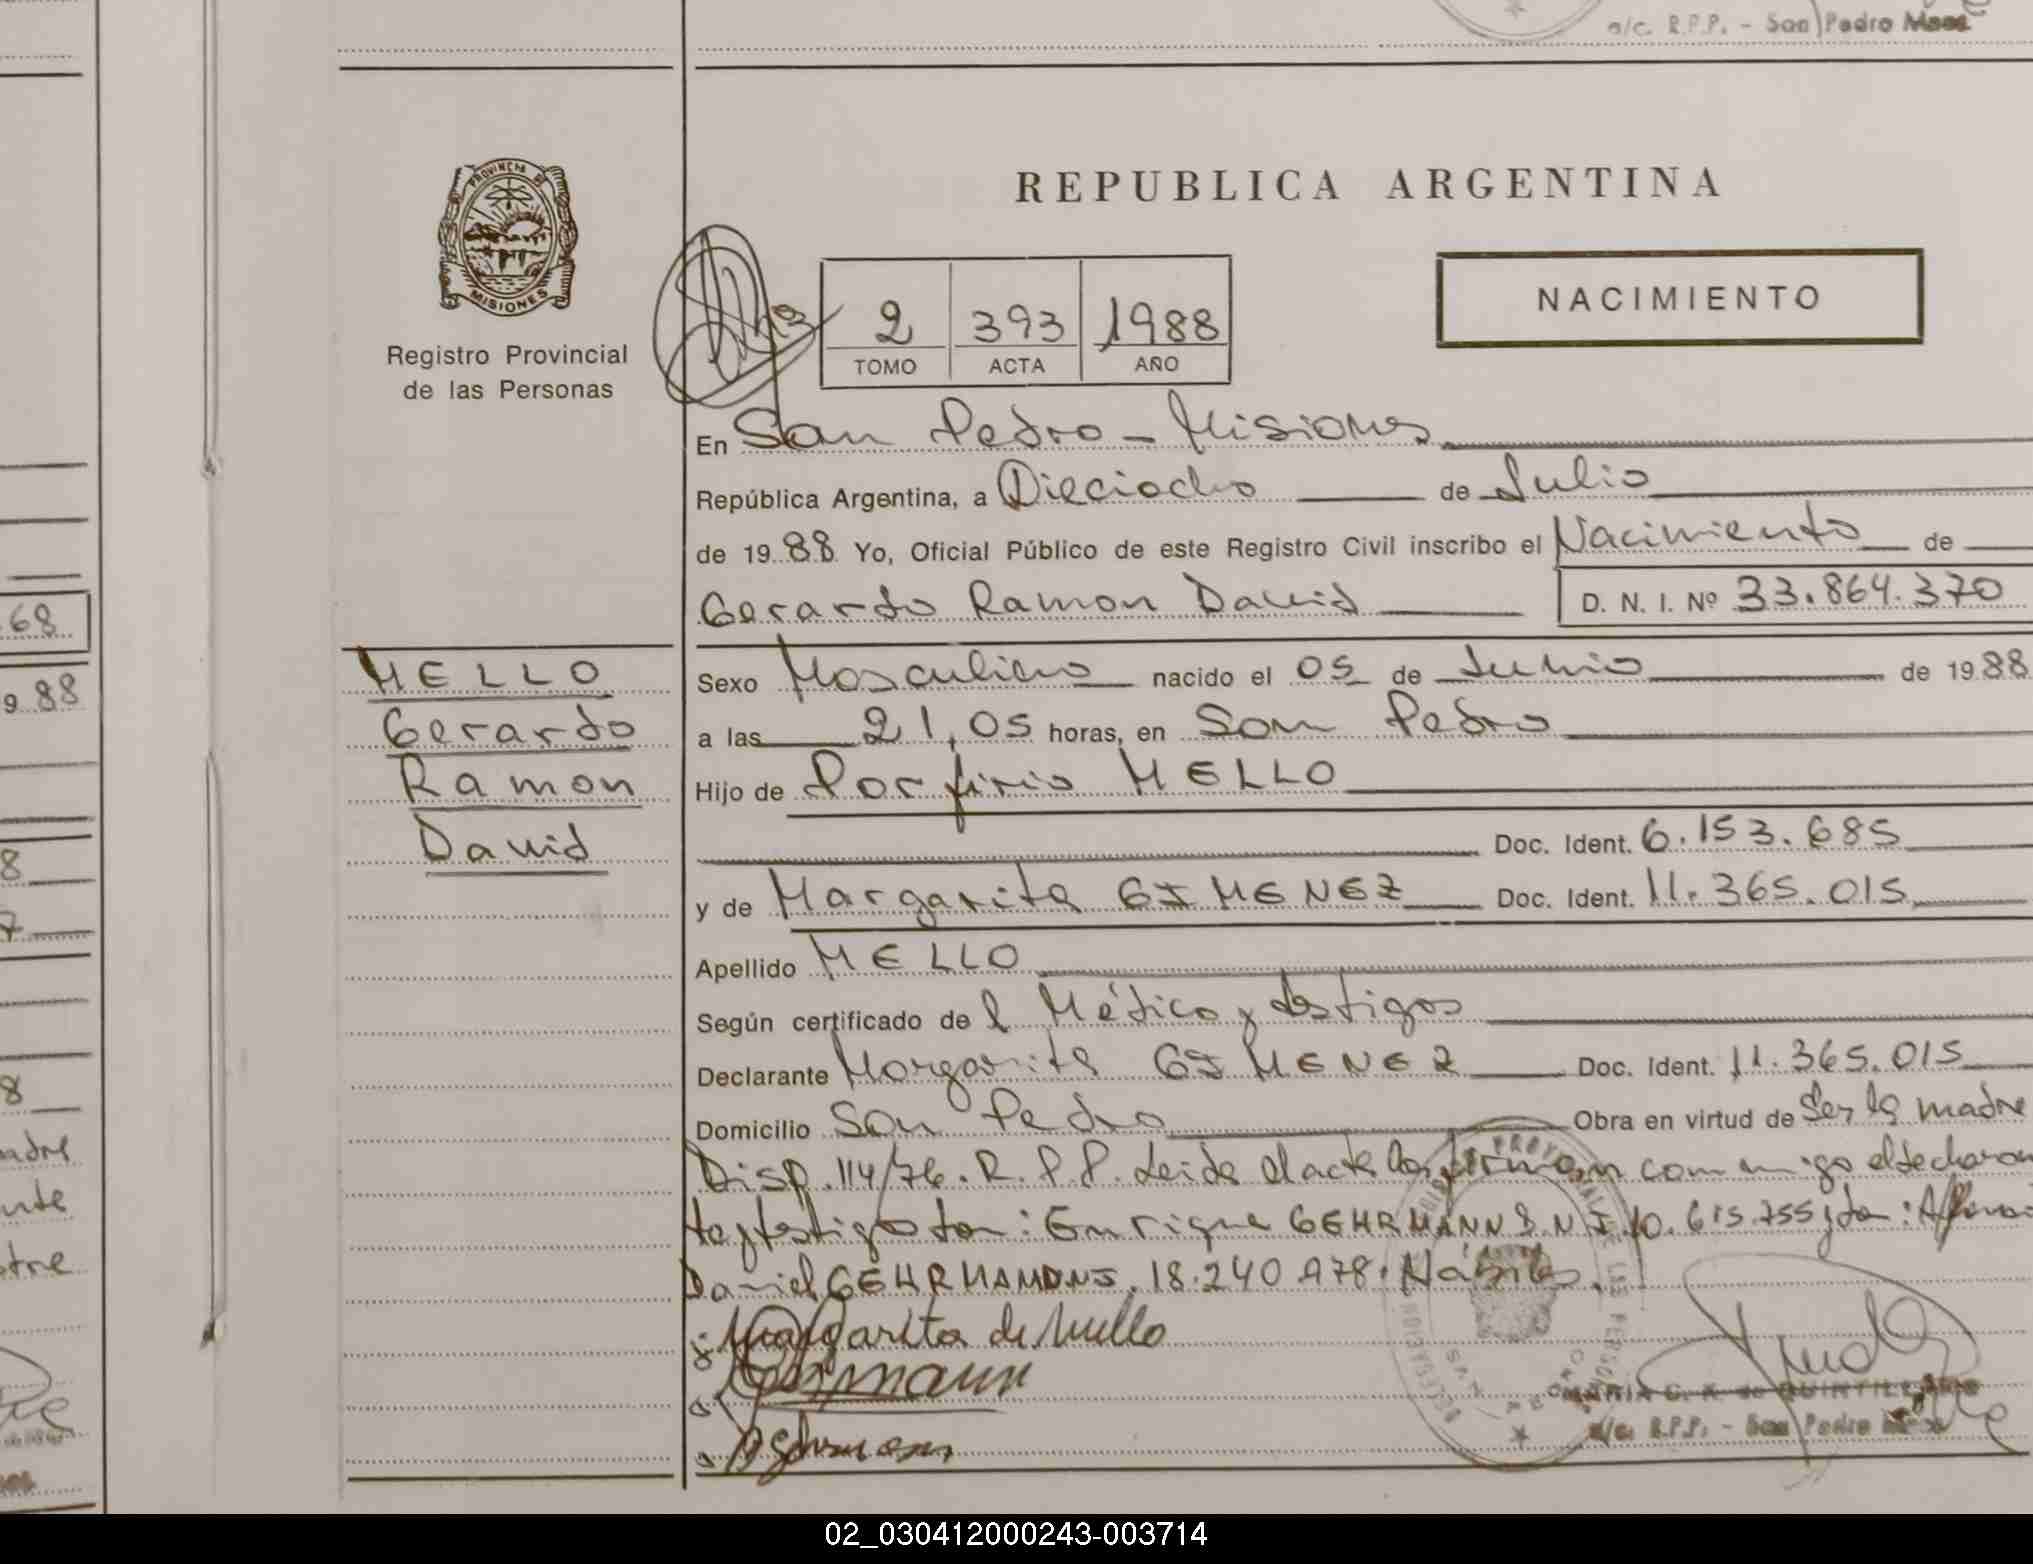 a/c. R.P.P. - San Pedro Mnes
PROVINCIA DE
MISIONES
Registro Provincial
de las Personas
REPUBLICA ARGENTINA
NACIMIENTO
2 393 1988
TOMO ACTA AÑO
En San Pedro - Misiones
República Argentina, a Dieciocho de Julio
de 19 88 Yo, Oficial Público de este Registro Civil inscribo el Nacimiento de
Gerardo Ramon David D. N. I. Nº 33.864.370
MELLO
Gerardo
Ramon
David
Sexo Masculino nacido el 05 de Junio de 1988
a las 21,05 horas, en San Pedro
Hijo de Porfirio MELLO
Doc. Ident. 6.153.685
y de Margarita GIMENEZ Doc. Ident. 11.365.015
Apellido MELLO
Según certificado de l Médico y testigos
Declarante Margarita GIMENEZ Doc. Ident. 11.365.015
Domicilio San Pedro Obra en virtud de Ser la madre
Disp. 114/76. R.P.P. Leida el acta la firman conmigo el declaran
te y testigo don: Enrique GEHRMANN D.N.I. 10.615.755 y don:
Daniel GEHRMANN DNI. 18.240.978. Hábiles.
Margarita de Mello
a/c. R.P.P. - San Pedro Mnes
68
9 88
8
7
8
adre
02_030412000243-003714